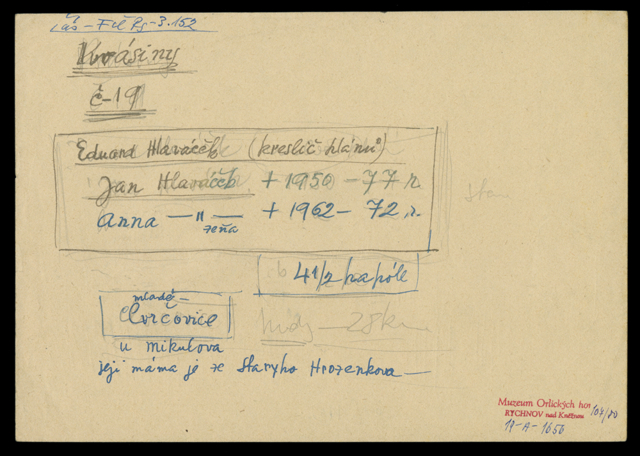 Krásiny
č-19
Eduard Hlaváček (kreslič plánů)
Jan Hlaváček + 1950 - 77 r.
Anna — " — + 1962 - 72 r.
žena
4 1/2
mladé -
u Mikulova
její máma je ze Staryho Hrozenkova —
Muzeum Orlických hor
RYCHNOV nad Kněžnou 104/80
17-A-1656